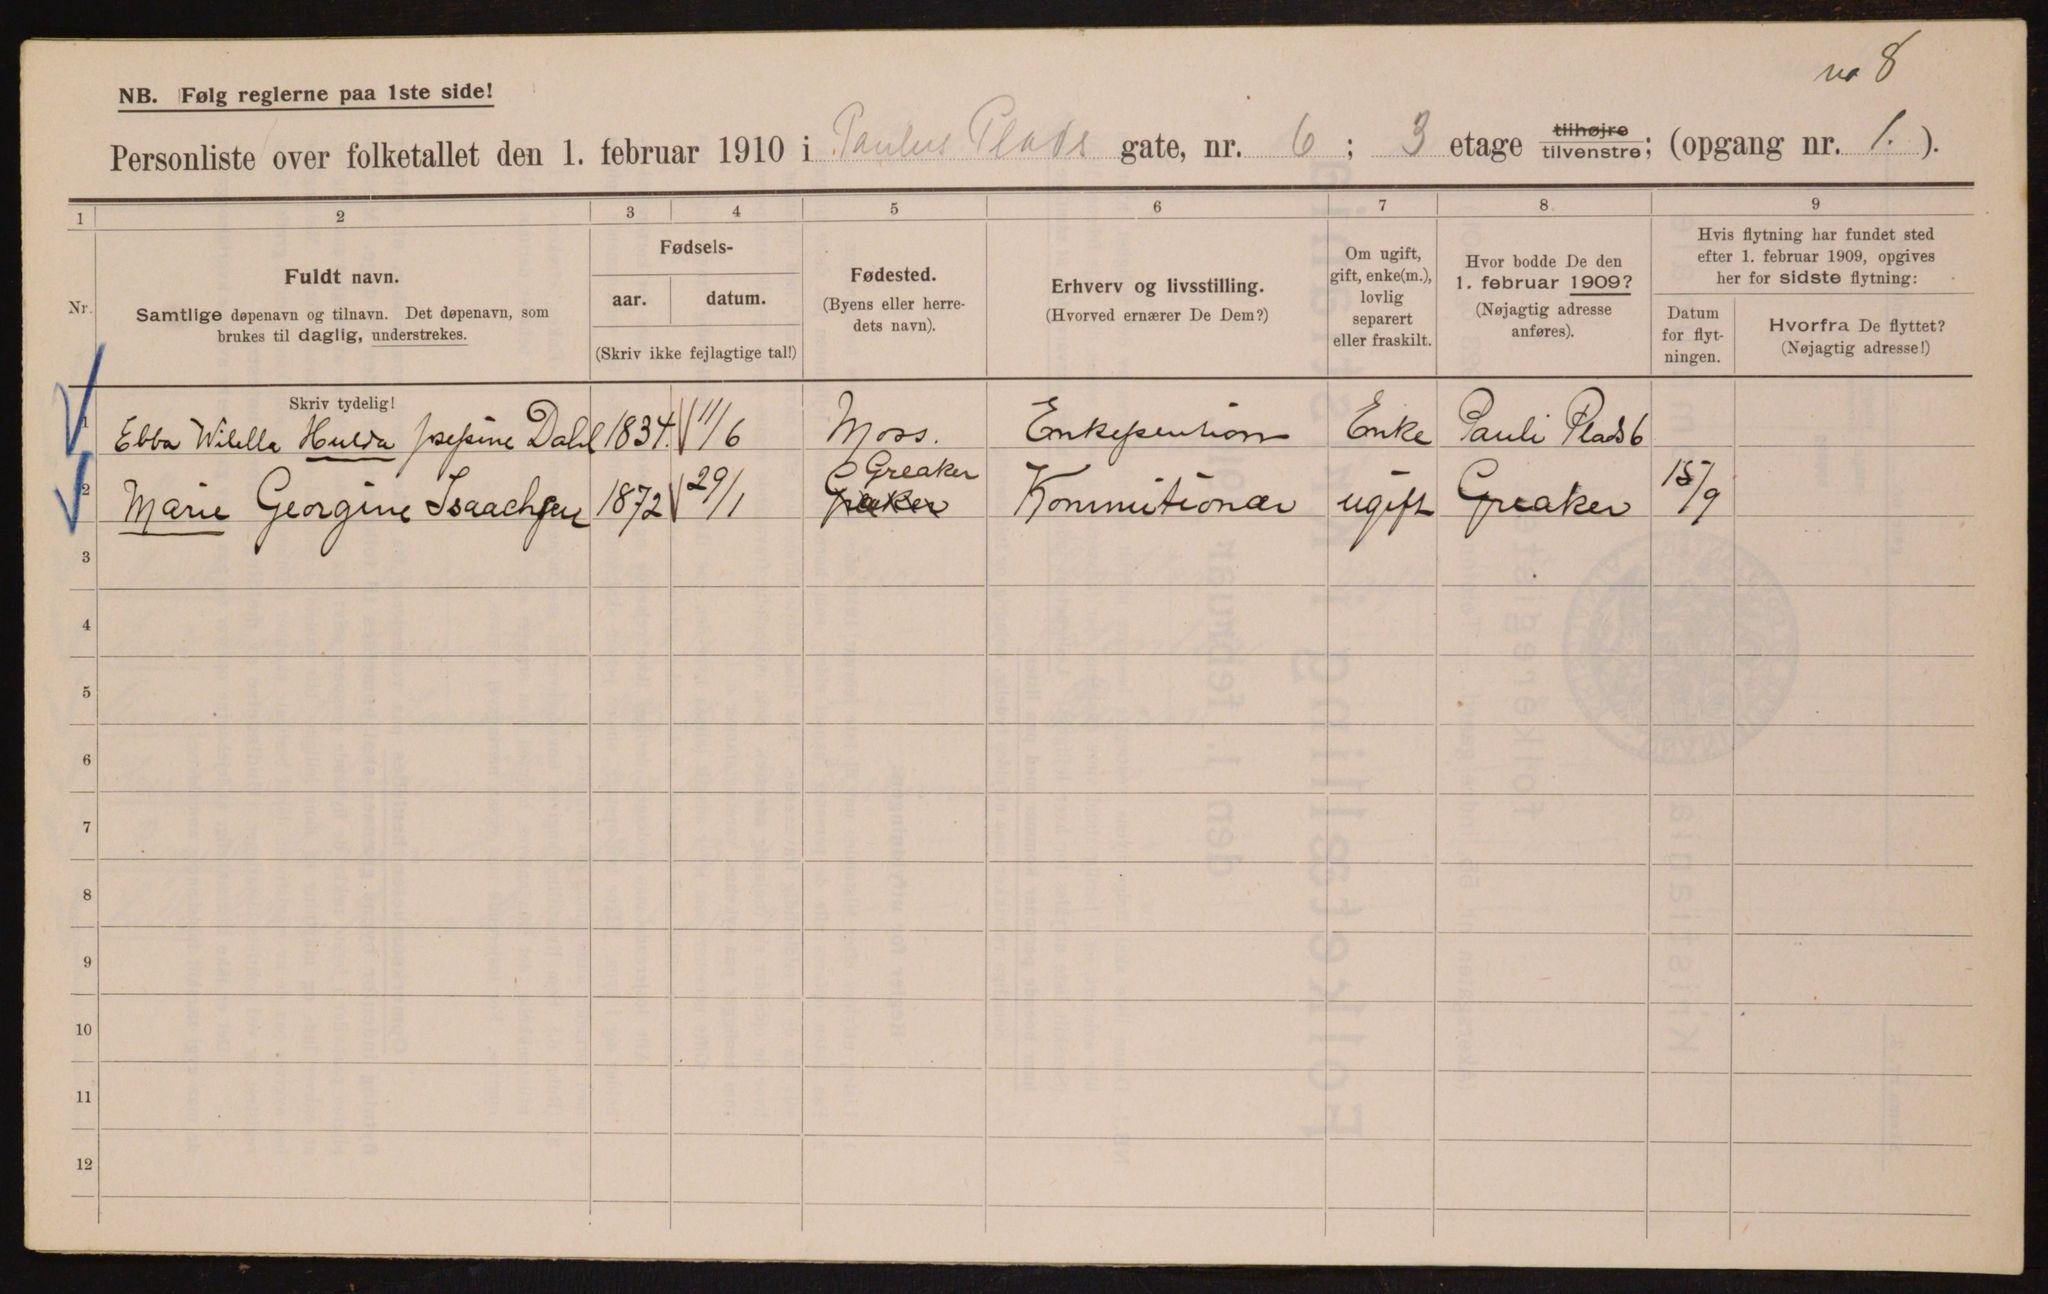 no 8
NB. Følg reglerne paa 1ste side!
Personliste over folketallet den 1. februar 1910 i Paulus Plads gate, nr. 6 ; 3 etage tilhøjre tilvenstre; (opgang nr. 1. ).
1 2 3 4 5 6 7 8 9
Nr.
Fuldt navn.
Samtlige døpenavn og tilnavn. Det døpenavn, som
brukes til daglig, understrekes.
Skriv tydelig!
Fødsels-
aar. datum.
(Skriv ikke fejlagtige tal!)
Fødested.
(Byens eller herre-
dets navn).
Erhverv og livsstilling.
(Hvorved ernærer De Dem?)
Om ugift,
gift, enke(m.),
lovlig
separert
eller fraskilt.
Hvor bodde De den
1. februar 1909?
(Nøjagtig adresse
anføres).
Hvis flytning har fundet sted
efter 1. februar 1909, opgives
her for sidste flytning:
Datum
for flyt-
ningen.
Hvorfra De flyttet?
(Nøjagtig adresse!)
1 Ebba Wilella Hulda Josefine Dahl 1834. 11/6 Moss. Enkepention Enke Pauli Plads 6
2 Marie Georgine Isaachsen 1872 29/1 Greaker Greaker Kommitionær ugift Greaker 15/9
3
4
5
6
7
8
9
10
11
12